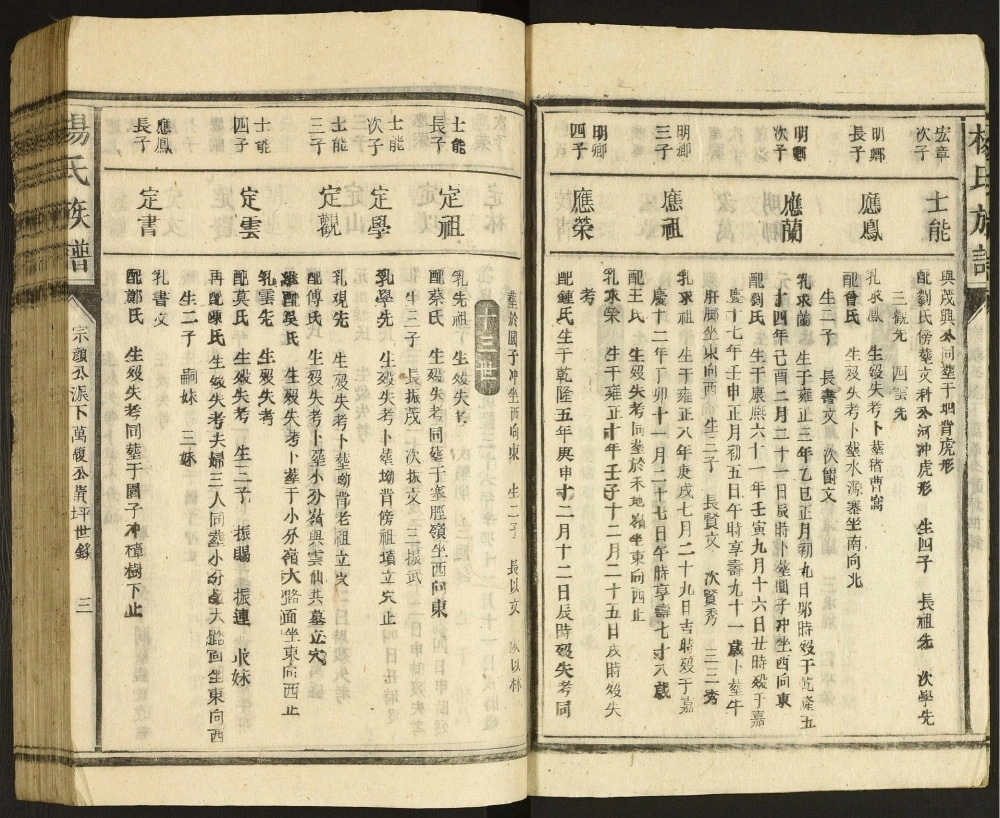 楊氏族譜
宏章
次子
士能
與茂興公同葬于坰背虎形
配劉氏傍葬文科公河冲虎形 生四子 長祖先 次學先
三觀先 四雲先
明卿
長子
應鳳
乳求鳳 生歿失考卜葬猪曹窩
配曾氏 生歿失考卜葬水源寨坐南向北
生二子 長書文 次
明卿
次子
應蘭
乳求蘭 生于雍正三年乙巳正月初九日卯時歿于乾隆五
十四年己酉二月二十一日辰時卜葬園子冲坐西向東
配劉氏 生于康熙六十一年壬寅九月十六日丑時歿于嘉
慶十七年壬申正月初五日午時享壽九十一歲卜葬牛
肝腳坐東向西 生三子 長賢文 次賢秀 三三秀
明卿
三子
應祖
乳求祖 生于雍正八年庚戌七月二十九日吉時歿于嘉
慶十二年丁卯十一月二十七日午時享壽七十八歲
配王氏 生歿失考同葬於禾地嶺坐東向西止
明卿
四子
應榮
乳求榮 生于雍正十年壬子十二月二十五日戌時歿失
考
配鍾氏 生于乾隆五年庚申十二月十二日辰時歿失考同
葬於園子冲坐西向東 生二子 長以文 次以林
十三世
士能
長子
定祖
乳先祖 生歿失考
配蔡氏 生歿失考同葬于寨脛嶺坐西向東
生三子 長振茂 次振文 三振武
士能
次子
定學
乳學先 生歿失考卜葬坳背傍祖墳立穴止
士能
三子
定觀
乳現先 生歿失考卜葬坳背老祖立穴
配傅氏 生歿失考卜葬小分嶺與雲仙共墓立穴
配吳氏 生歿失考卜葬于小分嶺大路面坐東向西止
士能
四子
定雲
乳雲先 生歿失考
配莫氏 生歿失考 生三子 振賜 振連 求妹
再配陳氏 生歿失考夫婦三人同葬小分嶺大路面坐東向西
生二子 嗣妹 三妹
應鳳
長子
定書
乳書文
配鄭氏 生歿失考同葬于園子冲樟樹下止
楊氏族譜
宗顯公派下萬復公黃坪世錄 三